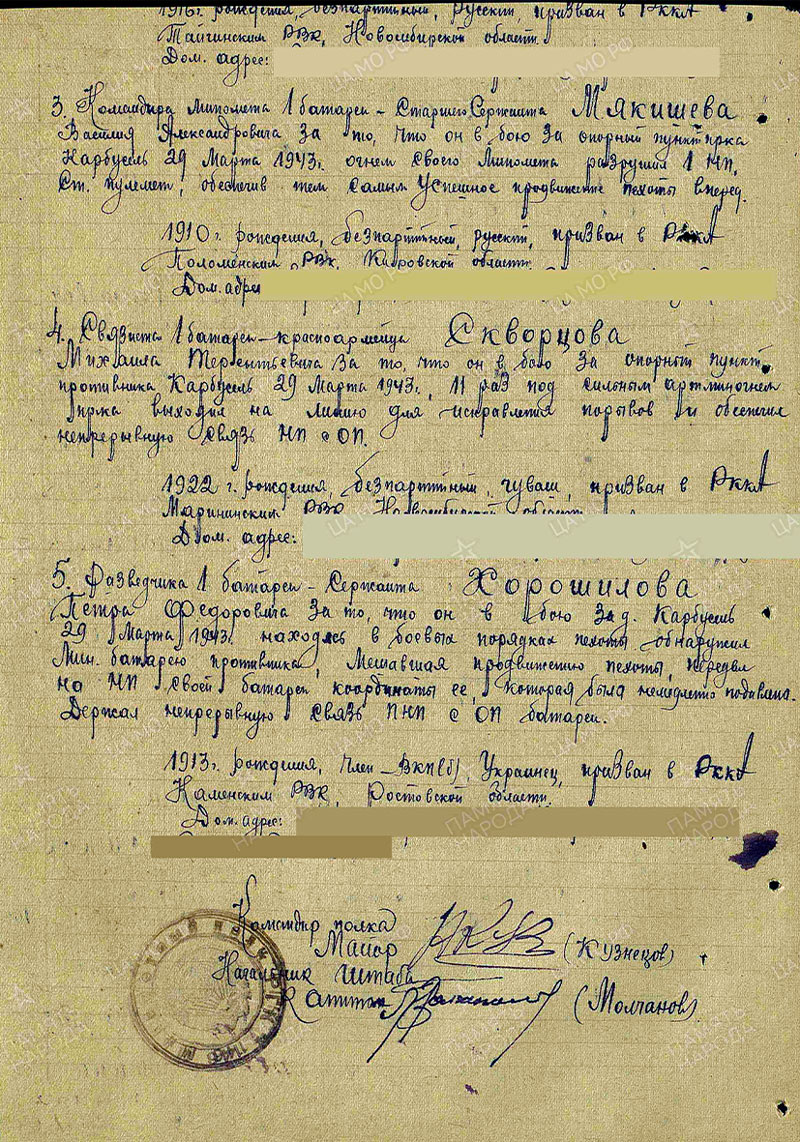 1916г. рождения, безпартийный, русский, призван в РККА
Тайгинским РВК, Новосибирской области.
Дом. адрес:
3. Командира миномета 1 батареи – Старшего Сержанта Мякишева
Василия Александровича за то, что он в бою за опорный пункт пр-ка
Карбусель 29 Марта 1943г. огнем своего миномета разрушил 1 НП,
Ст. пулемет, обеспечив тем самым успешное продвижение пехоты вперед.
1910г. рождения, безпартийный, русский, призван в РККА
РВК, Кировской области.
Дом. адрес
4. Связиста 1 батареи – красноармейца Скворцова
Михаила Терентьевича за то, что он в бою за опорный пункт
противника Карбусель 29 Марта 1943г. 11 раз под сильным артминогнем
пр-ка выходил на линию для исправления порывов и обеспечил
непрерывную связь НП с ОП.
1922 г. рождения, безпартийный, чуваш, призван в РККА
РВК Новосибирской области
Дом. адрес:
5. Разведчика 1 батареи – Сержанта Хорошилова
Петра Федоровича за то, что он в бою за д. Карбусель
29 Марта 1943г. находясь в боевых порядках пехоты обнаружил
Мин. батарею противника, мешавшая продвижению пехоты, передал
на НП своей батареи координаты ее, которая была немедленно подавлена.
Держал непрерывную связь ПНП с ОП батареи.
1913г. рождения, член – ВКП(б), Украинец, призван в РККА
Каменским РВК, Ростовской области.
Дом. адрес:
Командир полка
Майор (Кузнецов)
Начальник Штаба
Капитан (Молчанов)